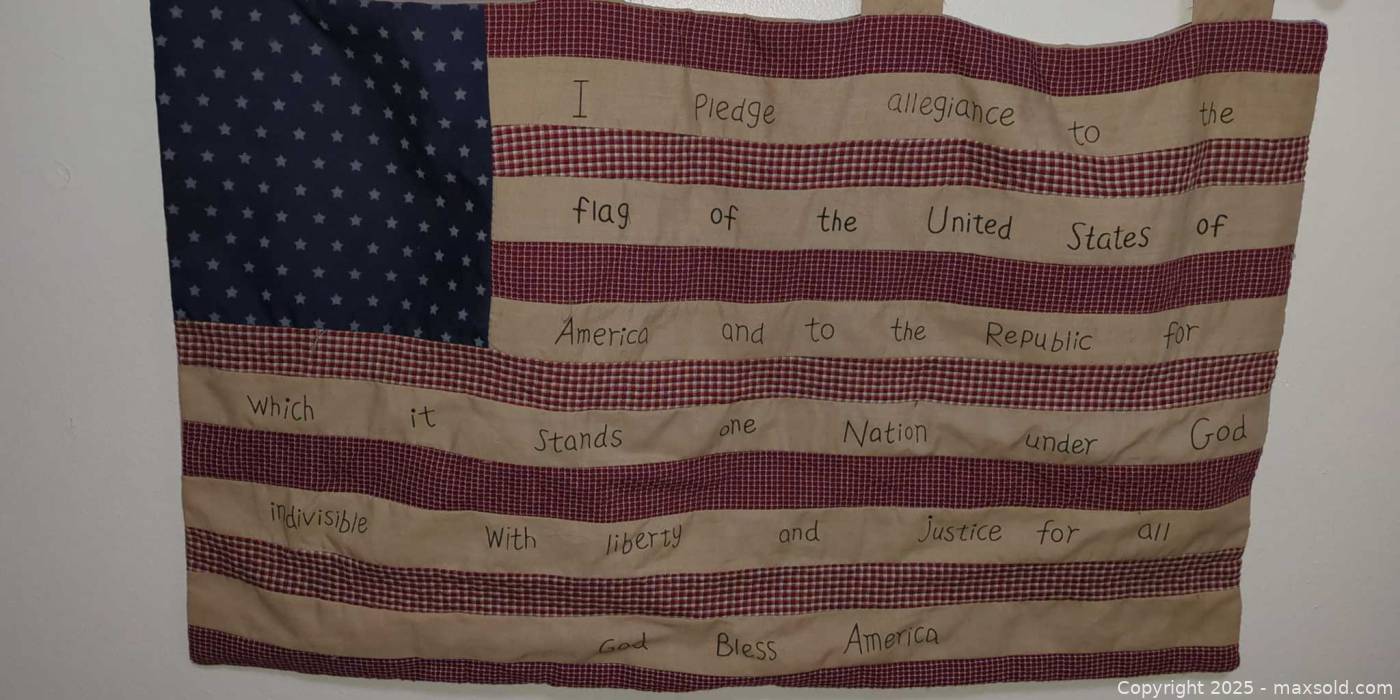 I Pledge allegiance to the
flag of the United States of
America and to the Republic for
which it Stands one Nation under God
indivisible With liberty and Justice for all
God Bless America
Copyright 2025 - maxsold.com